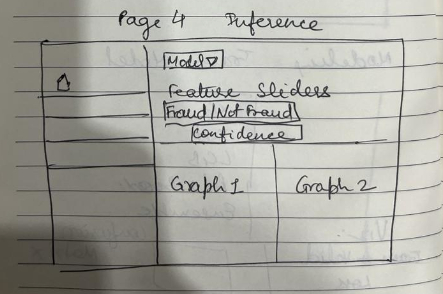 Page 4 Inference
Model ▽
Feature Sliders
Fraud/Not Fraud
Confidence
Graph 1 Graph 2